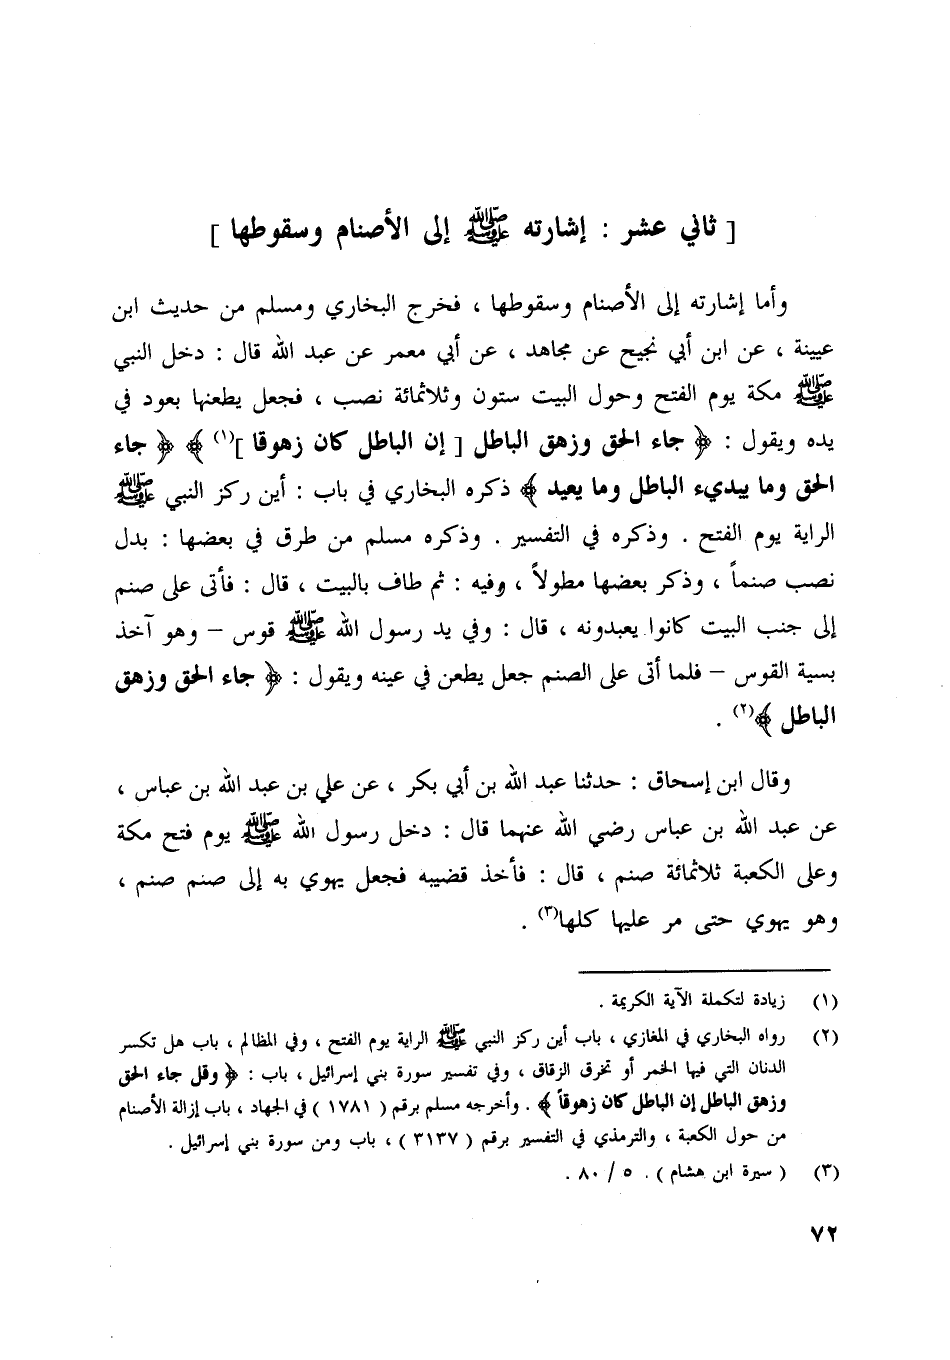 [ ثاني عشر : إشارته ﷺ إلى الأصنام وسقوطها ]
وأما إشارته إلى الأصنام وسقوطها ، فخرج البخاري ومسلم من حديث ابن
عيينة ، عن ابن أبي نجيح عن مجاهد ، عن أبي معمر عن عبد الله قال : دخل النبي
ﷺ مكة يوم الفتح وحول البيت ستون وثلاثمائة نصب ، فجعل يطعنها بعود في
يده ويقول : ﴿ جاء الحق وزهق الباطل [ إن الباطل كان زهوقا ](١) ﴾ ﴿ جاء
الحق وما يبديء الباطل وما يعيد ﴾ ذكره البخاري في باب : أين ركز النبي ﷺ
الراية يوم الفتح . وذكره في التفسير . وذكره مسلم من طرق في بعضها : بدل
نصب صنماً ، وذكر بعضها مطولاً ، وفيه : ثم طاف بالبيت ، قال : فأتى على صنم
إلى جنب البيت كانوا يعبدونه ، قال : وفي يد رسول الله ﷺ قوس – وهو آخذ
بسية القوس – فلما أتى على الصنم جعل يطعن في عينه ويقول : ﴿ جاء الحق وزهق
الباطل ﴾(٢) .
وقال ابن إسحاق : حدثنا عبد الله بن أبي بكر ، عن علي بن عبد الله بن عباس ،
عن عبد الله بن عباس رضي الله عنهما قال : دخل رسول الله ﷺ يوم فتح مكة
وعلى الكعبة ثلاثمائة صنم ، قال : فأخذ قضيبه فجعل يهوي به إلى صنم صنم ،
وهو يهوي حتى مر عليها كلها(٣) .
(١) زيادة لتكملة الآية الكريمة .
(٢) رواه البخاري في المغازي ، باب أين ركز النبي ﷺ الراية يوم الفتح ، وفي المظالم ، باب هل تكسر
الدنان التي فيها الخمر أو تخرق الزقاق ، وفي تفسير سورة بني إسرائيل ، باب : ﴿ وقل جاء الحق
وزهق الباطل إن الباطل كان زهوقاً ﴾ . وأخرجه مسلم برقم ( ١٧٨١ ) في الجهاد ، باب إزالة الأصنام
من حول الكعبة ، والترمذي في التفسير برقم ( ٣١٣٧ ) ، باب ومن سورة بني إسرائيل .
(٣) ( سيرة ابن هشام ) . ٥ / ٨٠ .
٧٢